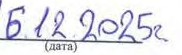 5.12.2025г.
(дата)